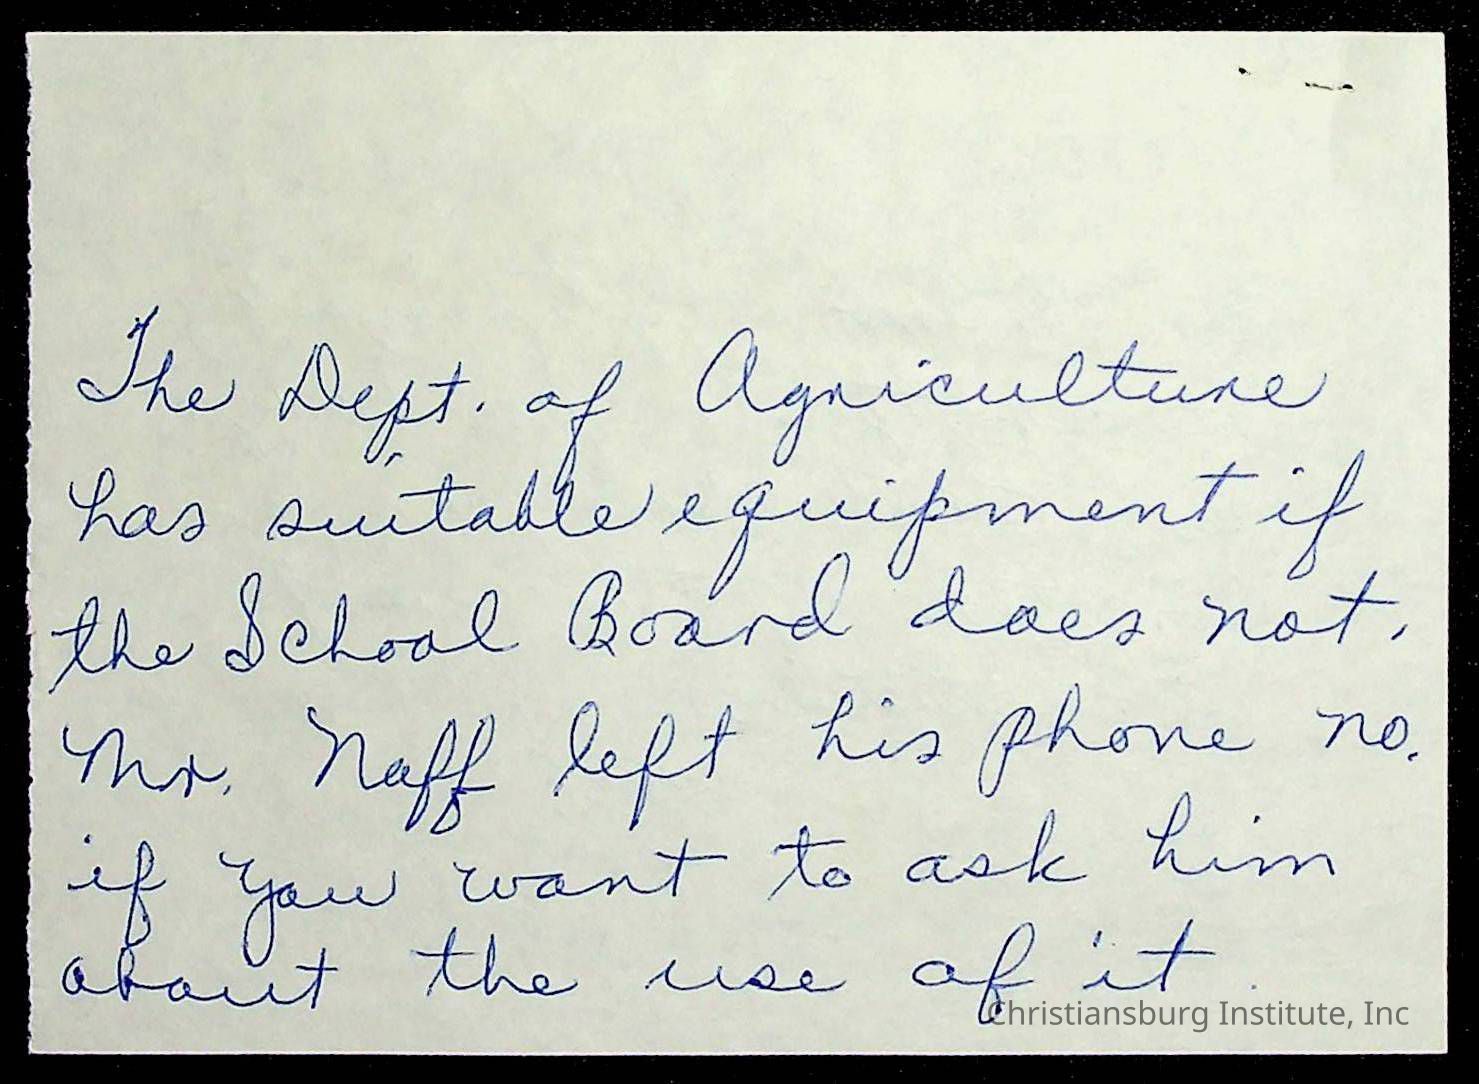 The Dept. of Agriculture
has suitable equipment if
the School Board does not.
Mr. Naff left his phone no.
if you want to ask him
about the use of it.
Christiansburg Institute, Inc